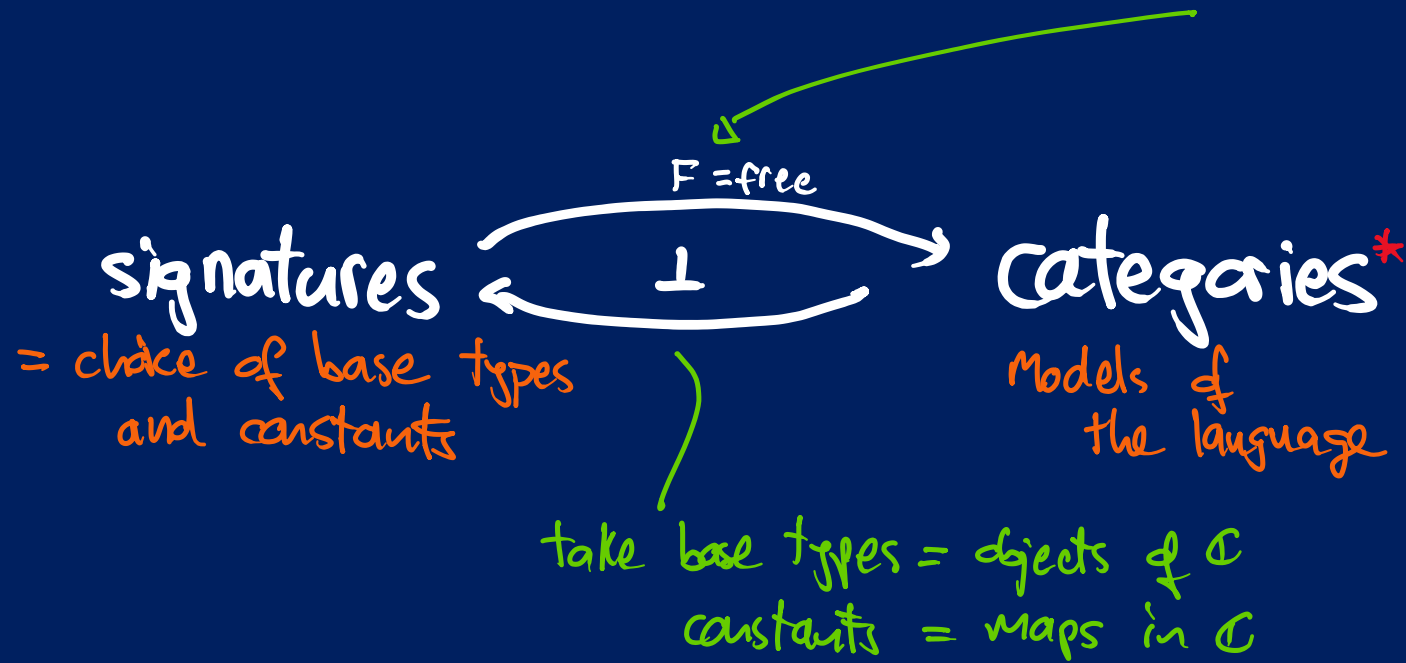 F = free
⊥
signatures
categories*
= choice of base types
and constants
Models of
the language
take base types = objects of ℂ
constants = maps in ℂ